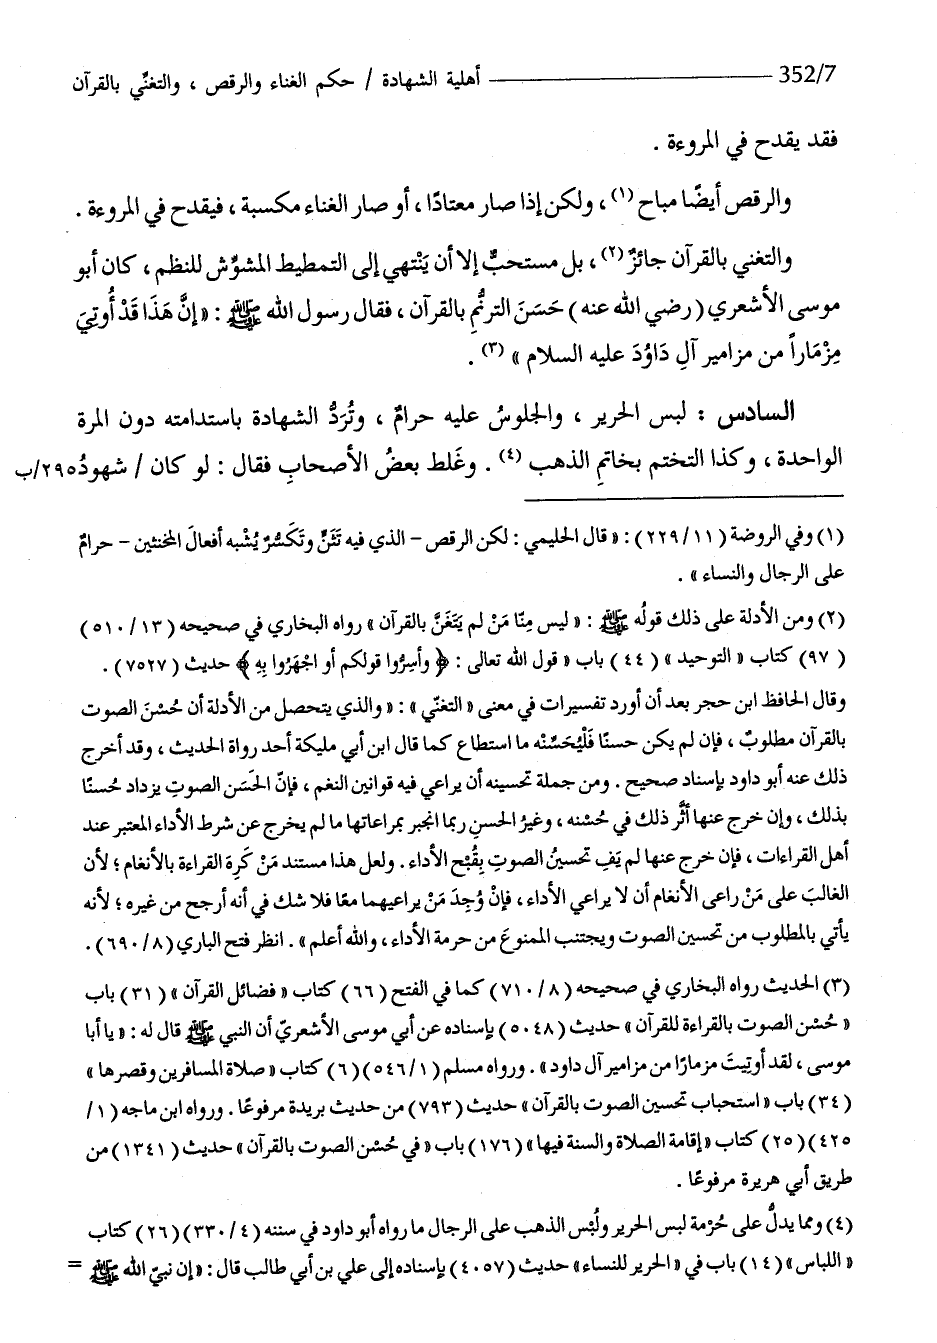 352/7 ——— أهلية الشهادة / حكم الغناء والرقص ، والتغنِّي بالقرآن
فقد يقدح في المروءة .
والرقص أيضًا مباح (١) ، ولكن إذا صار معتادًا ، أو صار الغناء مكسبة ، فيقدح في المروءة .
والتغني بالقرآن جائزٌ (٢) ، بل مستحبٌّ إلا أن يَنْتهي إلى التمطيط المشوِّش للنظم ، كان أبو
موسى الأشعري ( رضي الله عنه ) حَسَنَ الترنُّمِ بالقرآن ، فقال رسول الله ﷺ : « إنَّ هَذَا قَدْ أُوتِيَ
مِزْمَاراً من مزامير آلِ دَاوُدَ عليه السلام » (٣) .
السادس : لبس الحرير ، والجلوسُ عليه حرامٌ ، وتُرَدُّ الشهادة باستدامته دون المرة
الواحدة ، وكذا التختم بخاتمِ الذهب (٤) . وغَلط بعضُ الأصحابِ فقال : لو كان / شهودُ ٢٩٥/ب
(١) وفي الروضة ( ١١/ ٢٢٩ ) : « قال الحليمي : لكن الرقص – الذي فيه تَثَنٍّ وتَكَسُّرٌ يُشْبه أفعالَ المخنثين – حرامٌ
على الرجال والنساء » .
(٢) ومن الأدلة على ذلك قولُه ﷺ : « ليس مِنَّا مَنْ لم يَتَغَنَّ بالقرآن » رواه البخاري في صحيحه ( ١٣/ ٥١٠ )
( ٩٧) كتاب « التوحيد » ( ٤٤ ) باب « قول الله تعالى : ﴿ وأسِرُّوا قولكم أو اجْهَرُوا بِهِ ﴾ حديث ( ٧٥٢٧ ) .
وقال الحافظ ابن حجر بعد أن أورد تفسيرات في معنى « التغنّي » : « والذي يتحصل من الأدلة أن حُسْنَ الصوت
بالقرآن مطلوبٌ ، فإن لم يكن حسنًا فَلْيُحَسِّنْه ما استطاع كما قال ابن أبي مليكة أحد رواة الحديث ، وقد أخرج
ذلك عنه أبو داود بإسناد صحيح . ومن جملة تحسينه أن يراعي فيه قوانين النغم ، فإنّ الحَسَن الصوتِ يزداد حُسنًا
بذلك ، وإن خرج عنها أثَّر ذلك في حُسْنه ، وغيرُ الحسنِ ربما انجبر بمراعاتها ما لم يخرج عن شرط الأداء المعتبر عند
أهل القراءات ، فإن خرج عنها لم يَفِ تحسينُ الصوتِ بِقُبْح الأداء . ولعل هذا مستند مَنْ كَرِهَ القراءة بالأنغام ؛ لأن
الغالبَ على مَنْ راعى الأنغام أن لا يراعي الأداء ، فإنْ وُجِدَ مَنْ يراعيهما معًا فلا شك في أنه أرجح من غيره ؛ لأنه
يأتي بالمطلوب من تحسين الصوت ويجتنب الممنوعَ من حرمة الأداء ، والله أعلم » . انظر فتح الباري ( ٨/ ٦٩٠ ) .
(٣) الحديث رواه البخاري في صحيحه ( ٨/ ٧١٠ ) كما في الفتح ( ٦٦ ) كتاب « فضائل القرآن » ( ٣١ ) باب
« حُسْن الصوت بالقراءة للقرآن » حديث ( ٥٠٤٨ ) بإسناده عن أبي موسى الأشعريّ أن النبي ﷺ قال له : « يا أبا
موسى ، لقد أوتِيتَ مزمارًا من مزامير آل داود » . ورواه مسلم ( ١/ ٥٤٦ ) ( ٦ ) كتاب « صلاة المسافرين وقصرها »
( ٣٤ ) باب « استحباب تحسين الصوت بالقرآن » حديث ( ٧٩٣ ) من حديث بريدة مرفوعًا . ورواه ابن ماجه ( ١/
٤٢٥ ) ( ٢٥ ) كتاب « إقامة الصلاة والسنة فيها » ( ١٧٦ ) باب « في حُسْن الصوت بالقرآن » حديث ( ١٣٤١ ) من
طريق أبي هريرة مرفوعًا .
(٤) ومما يدلُّ على حُرْمة لبس الحرير ولُبْس الذهب على الرجال ما رواه أبو داود في سننه ( ٤/ ٣٣٠ ) ( ٢٦ ) كتاب
« اللباس » ( ١٤ ) باب في « الحرير للنساء » حديث ( ٤٠٥٧ ) بإسناده إلى علي بن أبي طالب قال : « إن نبيّ الله ﷺ =